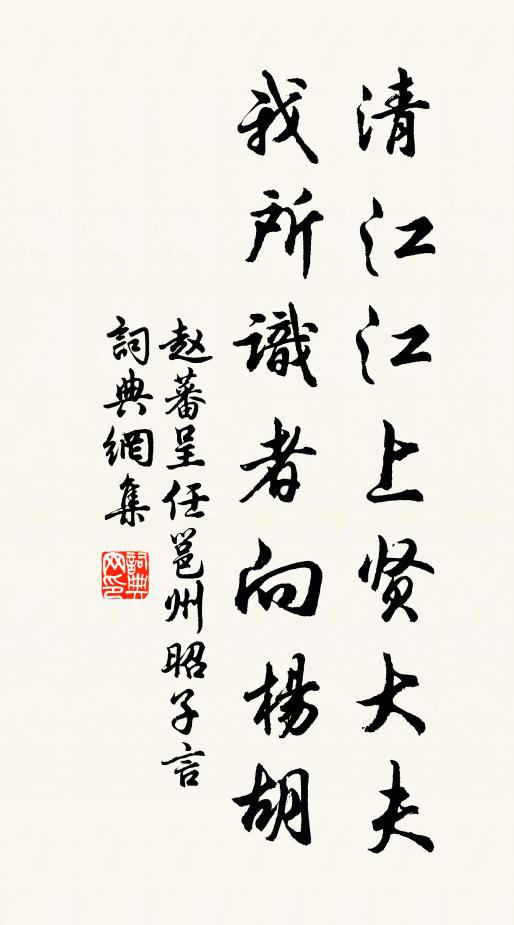 清江江上贤大夫
我所識者向楊胡
赵蕃呈任邕州昭子言
詞典網集
詞典网印